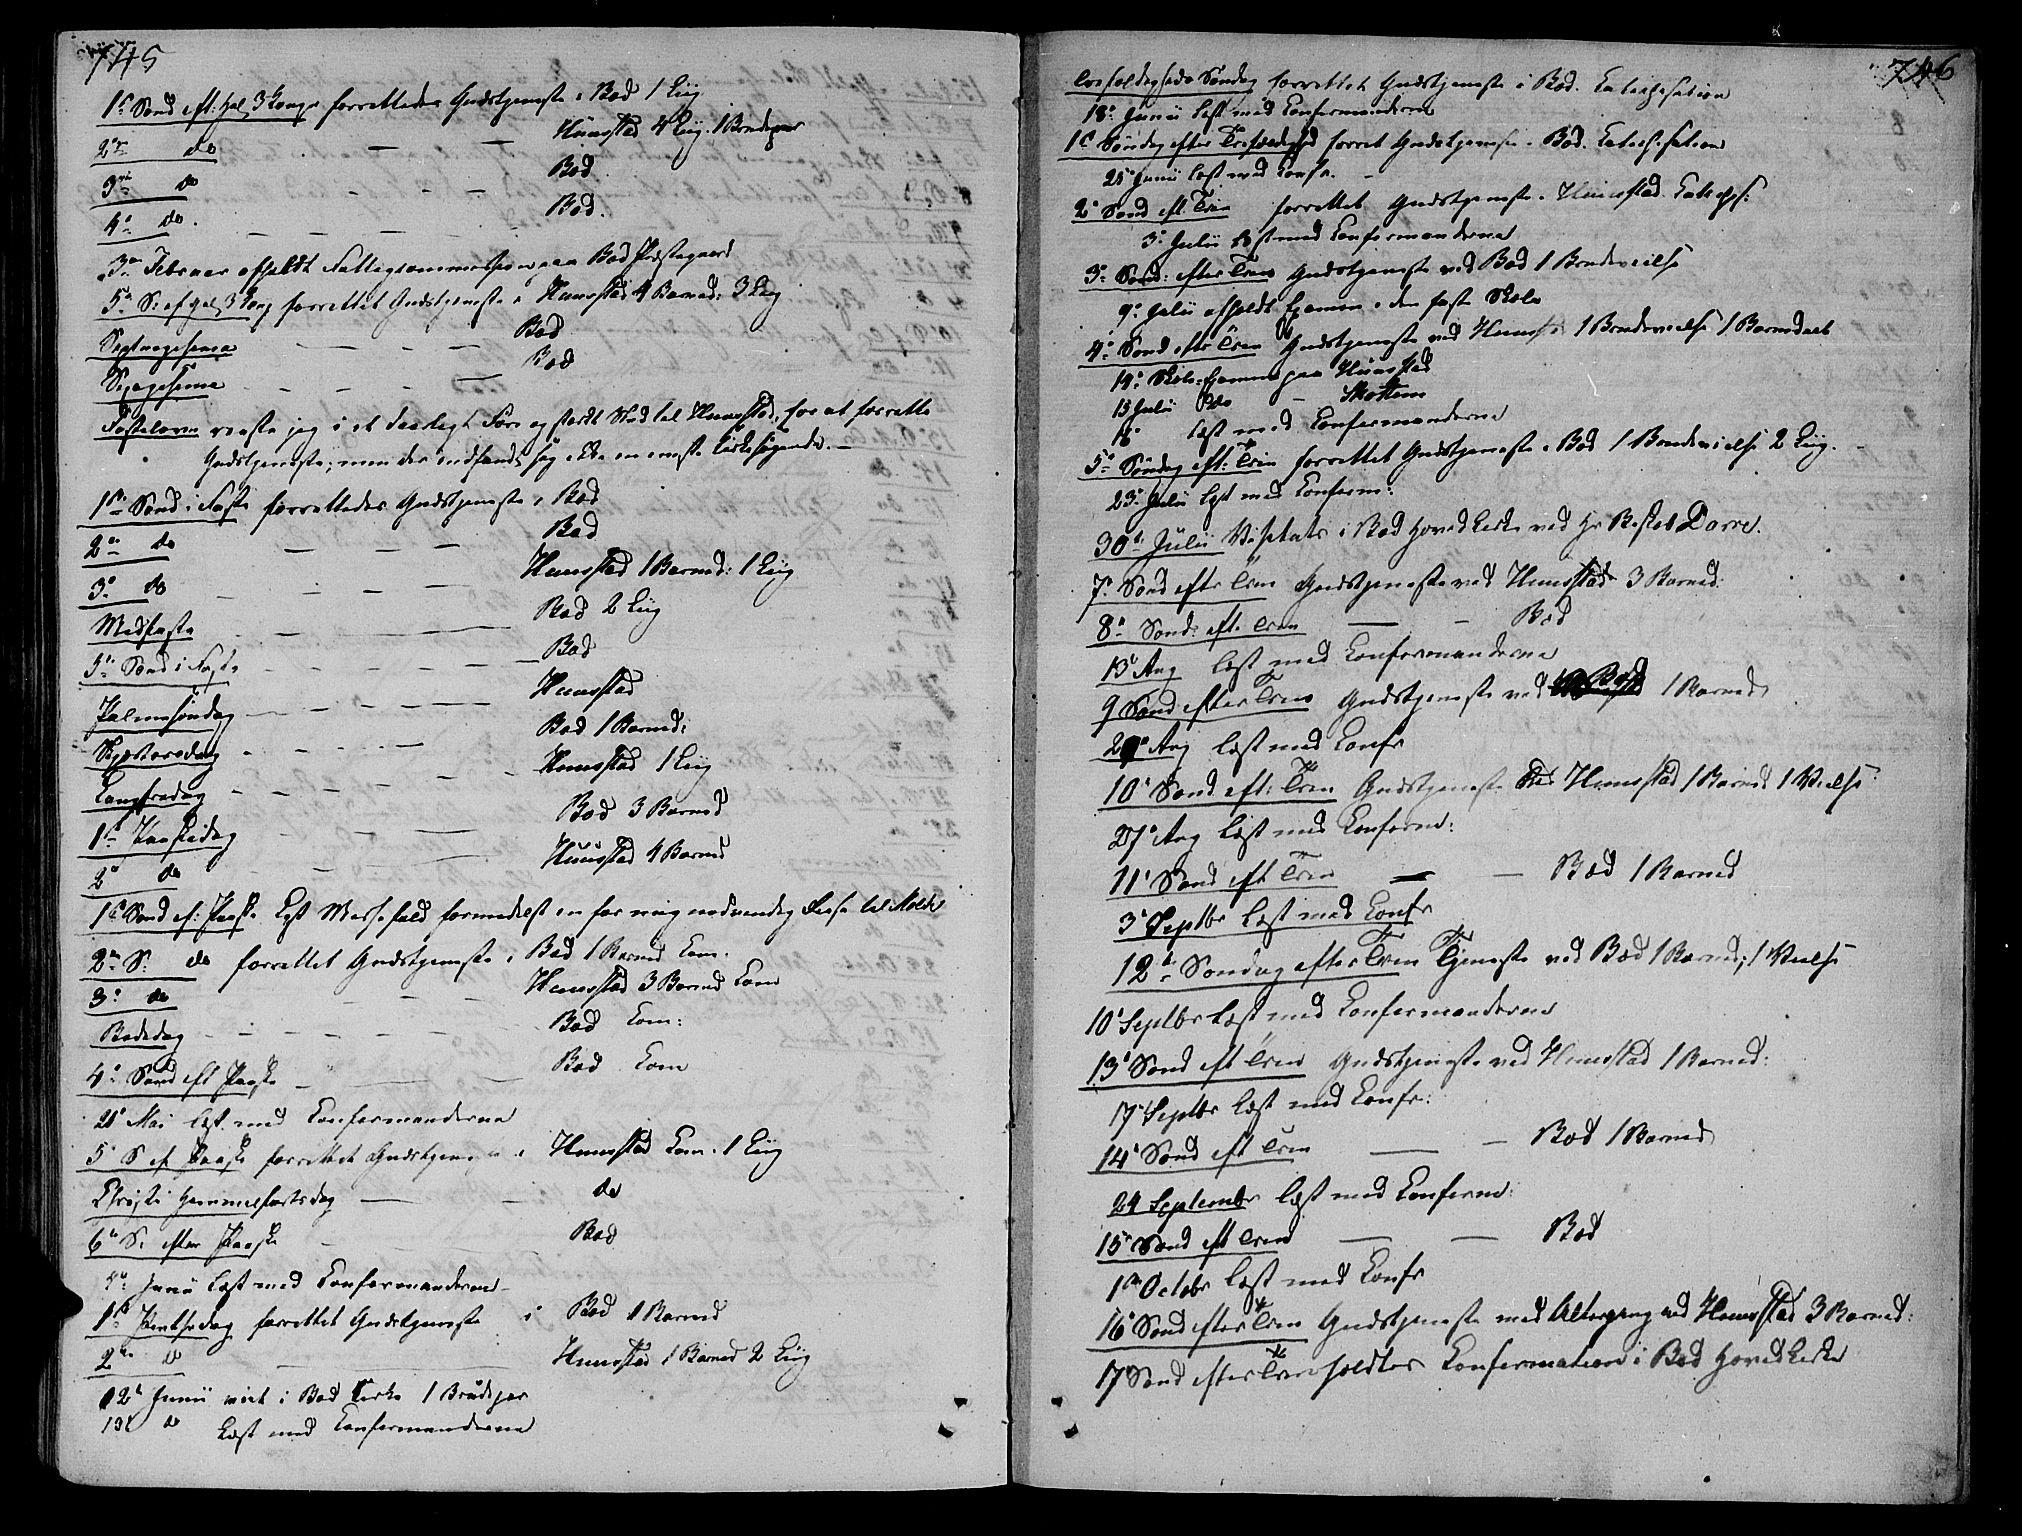 745
1ste Sønd eft: Hel 3 Konger forrettedes Gudstjeneste i Bod 1 Liig
2den do — — — Huustad 4 Liig. 1 Brudepar
3die do — — — Bod.
4de do. — — — Bod.
3die Februar afholdt Fattigcommission paa Bod Præstegaard
5te S: ef Hel 3 Kong forrettet Gudstjeneste i Huustad 4 Barned: 3 Liig
Septuagesima — — — Bod
Sexagesima — — — Bod
Fastelavn reiste jeg i et daarligt Føre og stærkt Vind til Huustad, for at forrette
Gudstjeneste; men der indfandt sig ikke en eneste Kirkesøgende. —
1ste Sønd i Faste forrettedes Gudstjeneste i Bod
2den do — — — Bod
3die do — — — Huustad 1 Barned: 1 Liig
Midfaste — — — Bod 2 Liig
5te Sønd i Faste — — — Bod
Palmesøndag — — — Huustad
Skjærtorsdag — — — Bod 1 Barned:
Langfredag — — — Huustad 1 Liig
1ste Paaskedag — — — Bod 3 Barned
2den do — — — Huustad 4 Barned
1ste Sønd ef: Paaske Lyst Messefald formedelst en for mig nødvendig Reise til Molde
2den S: do forrettet Gudstjeneste i Bod 1 Barned Com.
3die do — — Huustad 3 Barned Com
Bededag — — — Bod Com:
4de Sønd eft Paaske — — — Bod Com
21de Mai læst med Confirmanderne
5te S ef Paaske forrettet Gudstjeneste i Huustad Com. 1 Liig
Christi Himmelfartsdag — — do
6te S. efter Paaske — Bod
5te Junii læst med Confirmanderne
1ste Pintsedag forrettet Gudstjeneste i Bod 1 Barned
2den do — — Huustad 1 Barned 2 Liig
12te Junii viet i Bod Kirke 1 Brudepar
13de do Læst med Confirmanderne
746
Trefoldigheds Søndag forrettet Gudstjeneste i Bod. Catechisation
18de Junii læst med Confirmanderne
1ste Søndag efter Trefoldighed forret Gudstjeneste i Bod. Catechisation
25de Junii læst med Confir. —
2den Sønd eft. Trin forrettet Gudstjeneste i Huustad Catechs:
3die Julii læst med Confirmanderne
3die Sønd: efter Trin Gudstjeneste ved Bod 1 Brudevielse
9de Julii afholdt Examen i den faste Skole
4de Sønd efter Trin Gudstjeneste ved Huust: 1 Brudevielse 1 Barnedaab
14de Skole-Examen paa Huustad
15 Julii do — Skottem
16 læst med Confirmanderne
5te Søndag eft: Trin forrettet Gudstjeneste i Bod 1 Brudevielse 2 Liig. —
23de Julii læst med Confirm:
30te Julii Visitats i Bod Hovedkirke ved Hr Biskob Darre.
7de Sønd efter Trin Gudstjeneste ved Huustad 3 Barned:
8de Sønd: eft. Trin — — Bod
13de Aug læst med Confirmanderne
9 Sønd efter Trin Gudstjeneste ved Bod 1 Barned
20de Aug læst med Confir
10de Sønd. eft: Trin Gudstjeneste ved Huustad 1 Barned 1 Vielse
27de Aug læst med Confirm:
11te Sønd eft Trin — — Bod 1 Barned
3die Septbr læst med Confir
12te Søndag efter Trin Tjeneste ved Bod 1 Barned; 1 Vielse
10de Septbr læst med Confirmanderne
13de Sønd eft Trin Gudstjeneste ved Huustad 1 Barned:
17de Septbr læst med Confir:
14de Sønd eft Trin — — Bod 1 Barned
24 Septembr læst med Confirm:
15de Sønd eft Trin — — Bod
1ste Octobr læst med Confir
16de Sønd efter Trin Gudstjeneste med Altergang ved Huustad 3 Barned:
17de Sønd efter Trin holdtes Confirmation i Bod Hovedkirke